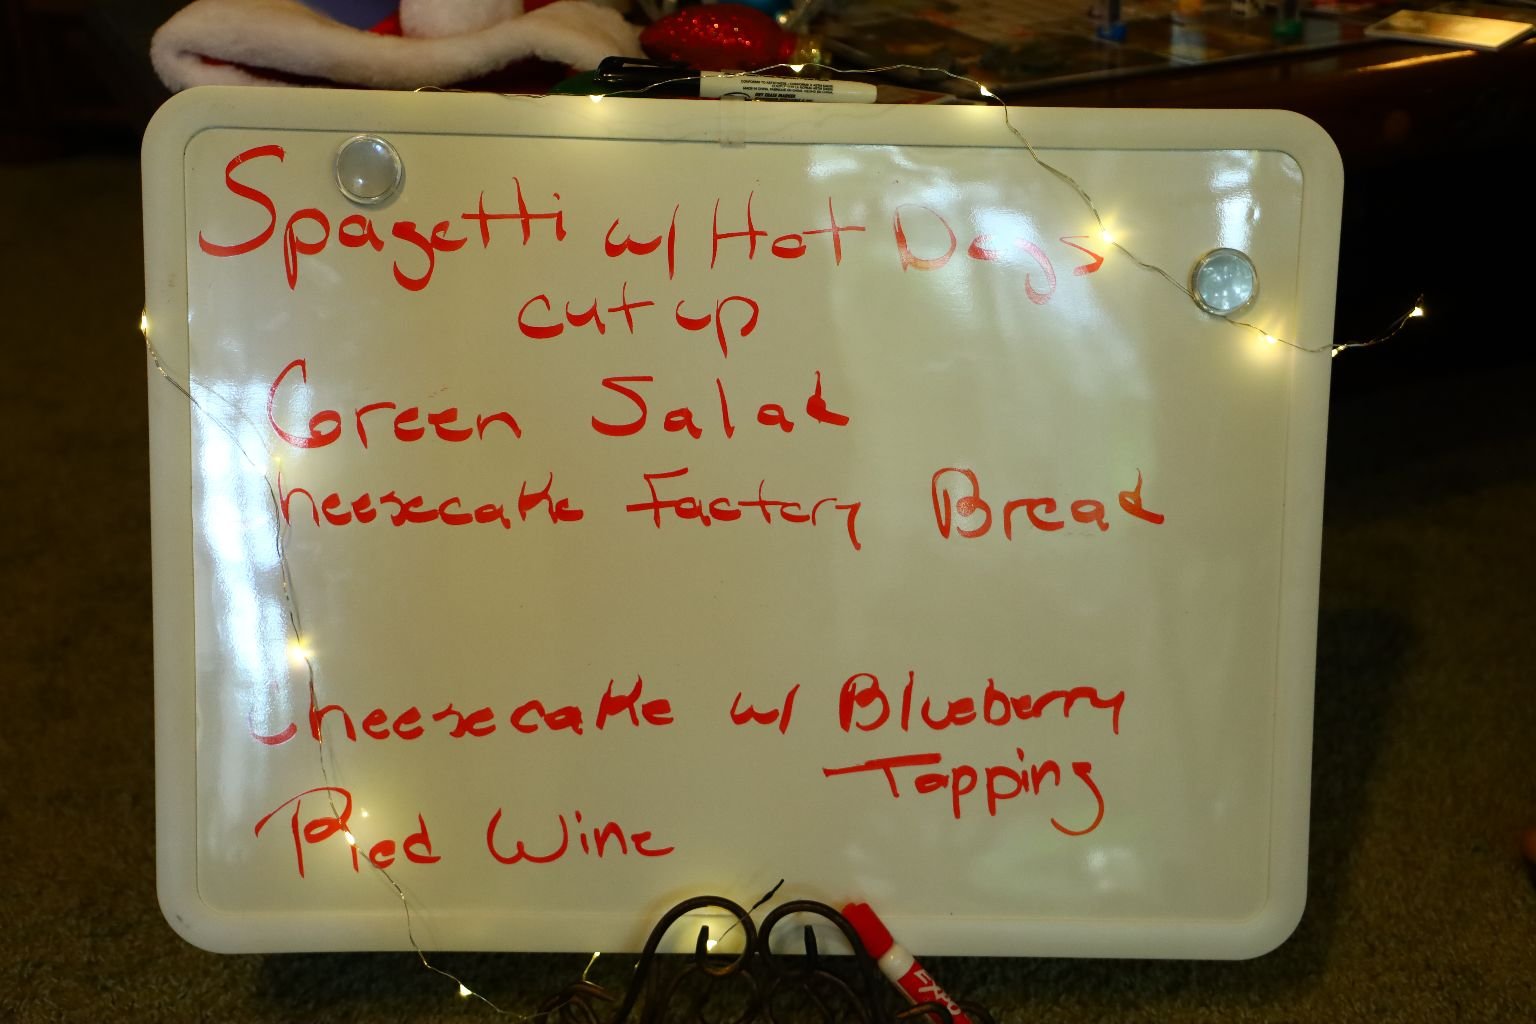 Spagetti w/ Hot Dogs
cut up
Green Salad
Cheesecake Factory Bread
Cheesecake w/ Blueberry
Topping
Red Wine
EXPO